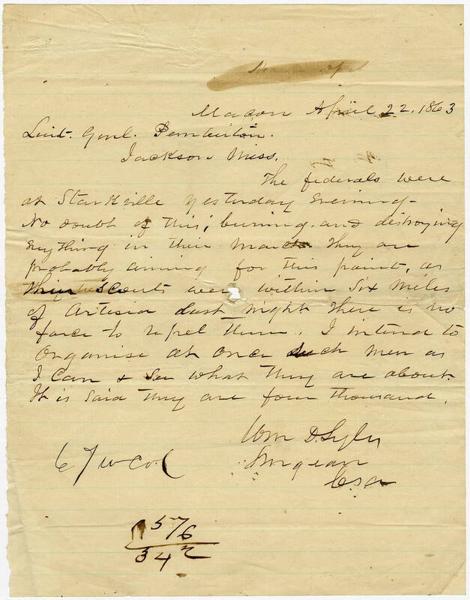 Macon April 22, 1863
Lieut. Genl. Pemberton.
Jackson Miss.
The federals were
at Starkville yesterday evening -
No doubt of this; burning and distroying
evything in their march they are
probably aiming for this point, as
their scouts were within six miles
of Artesia last night there is no
force to repel them. I intend to
Organise at once such men as
I can & see what they are about.
It is said they are four thousand.
Wm D. Lyles
Surgeon
CSA
67 w Col
576
342